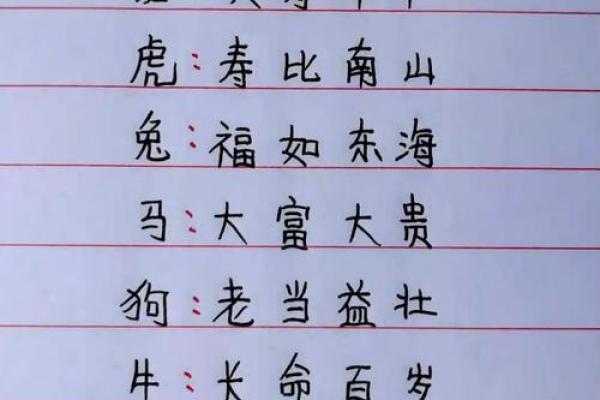 虎:寿比南山
兔:福如东海
马:大富大贵
狗:老当益壮
牛:长命百岁